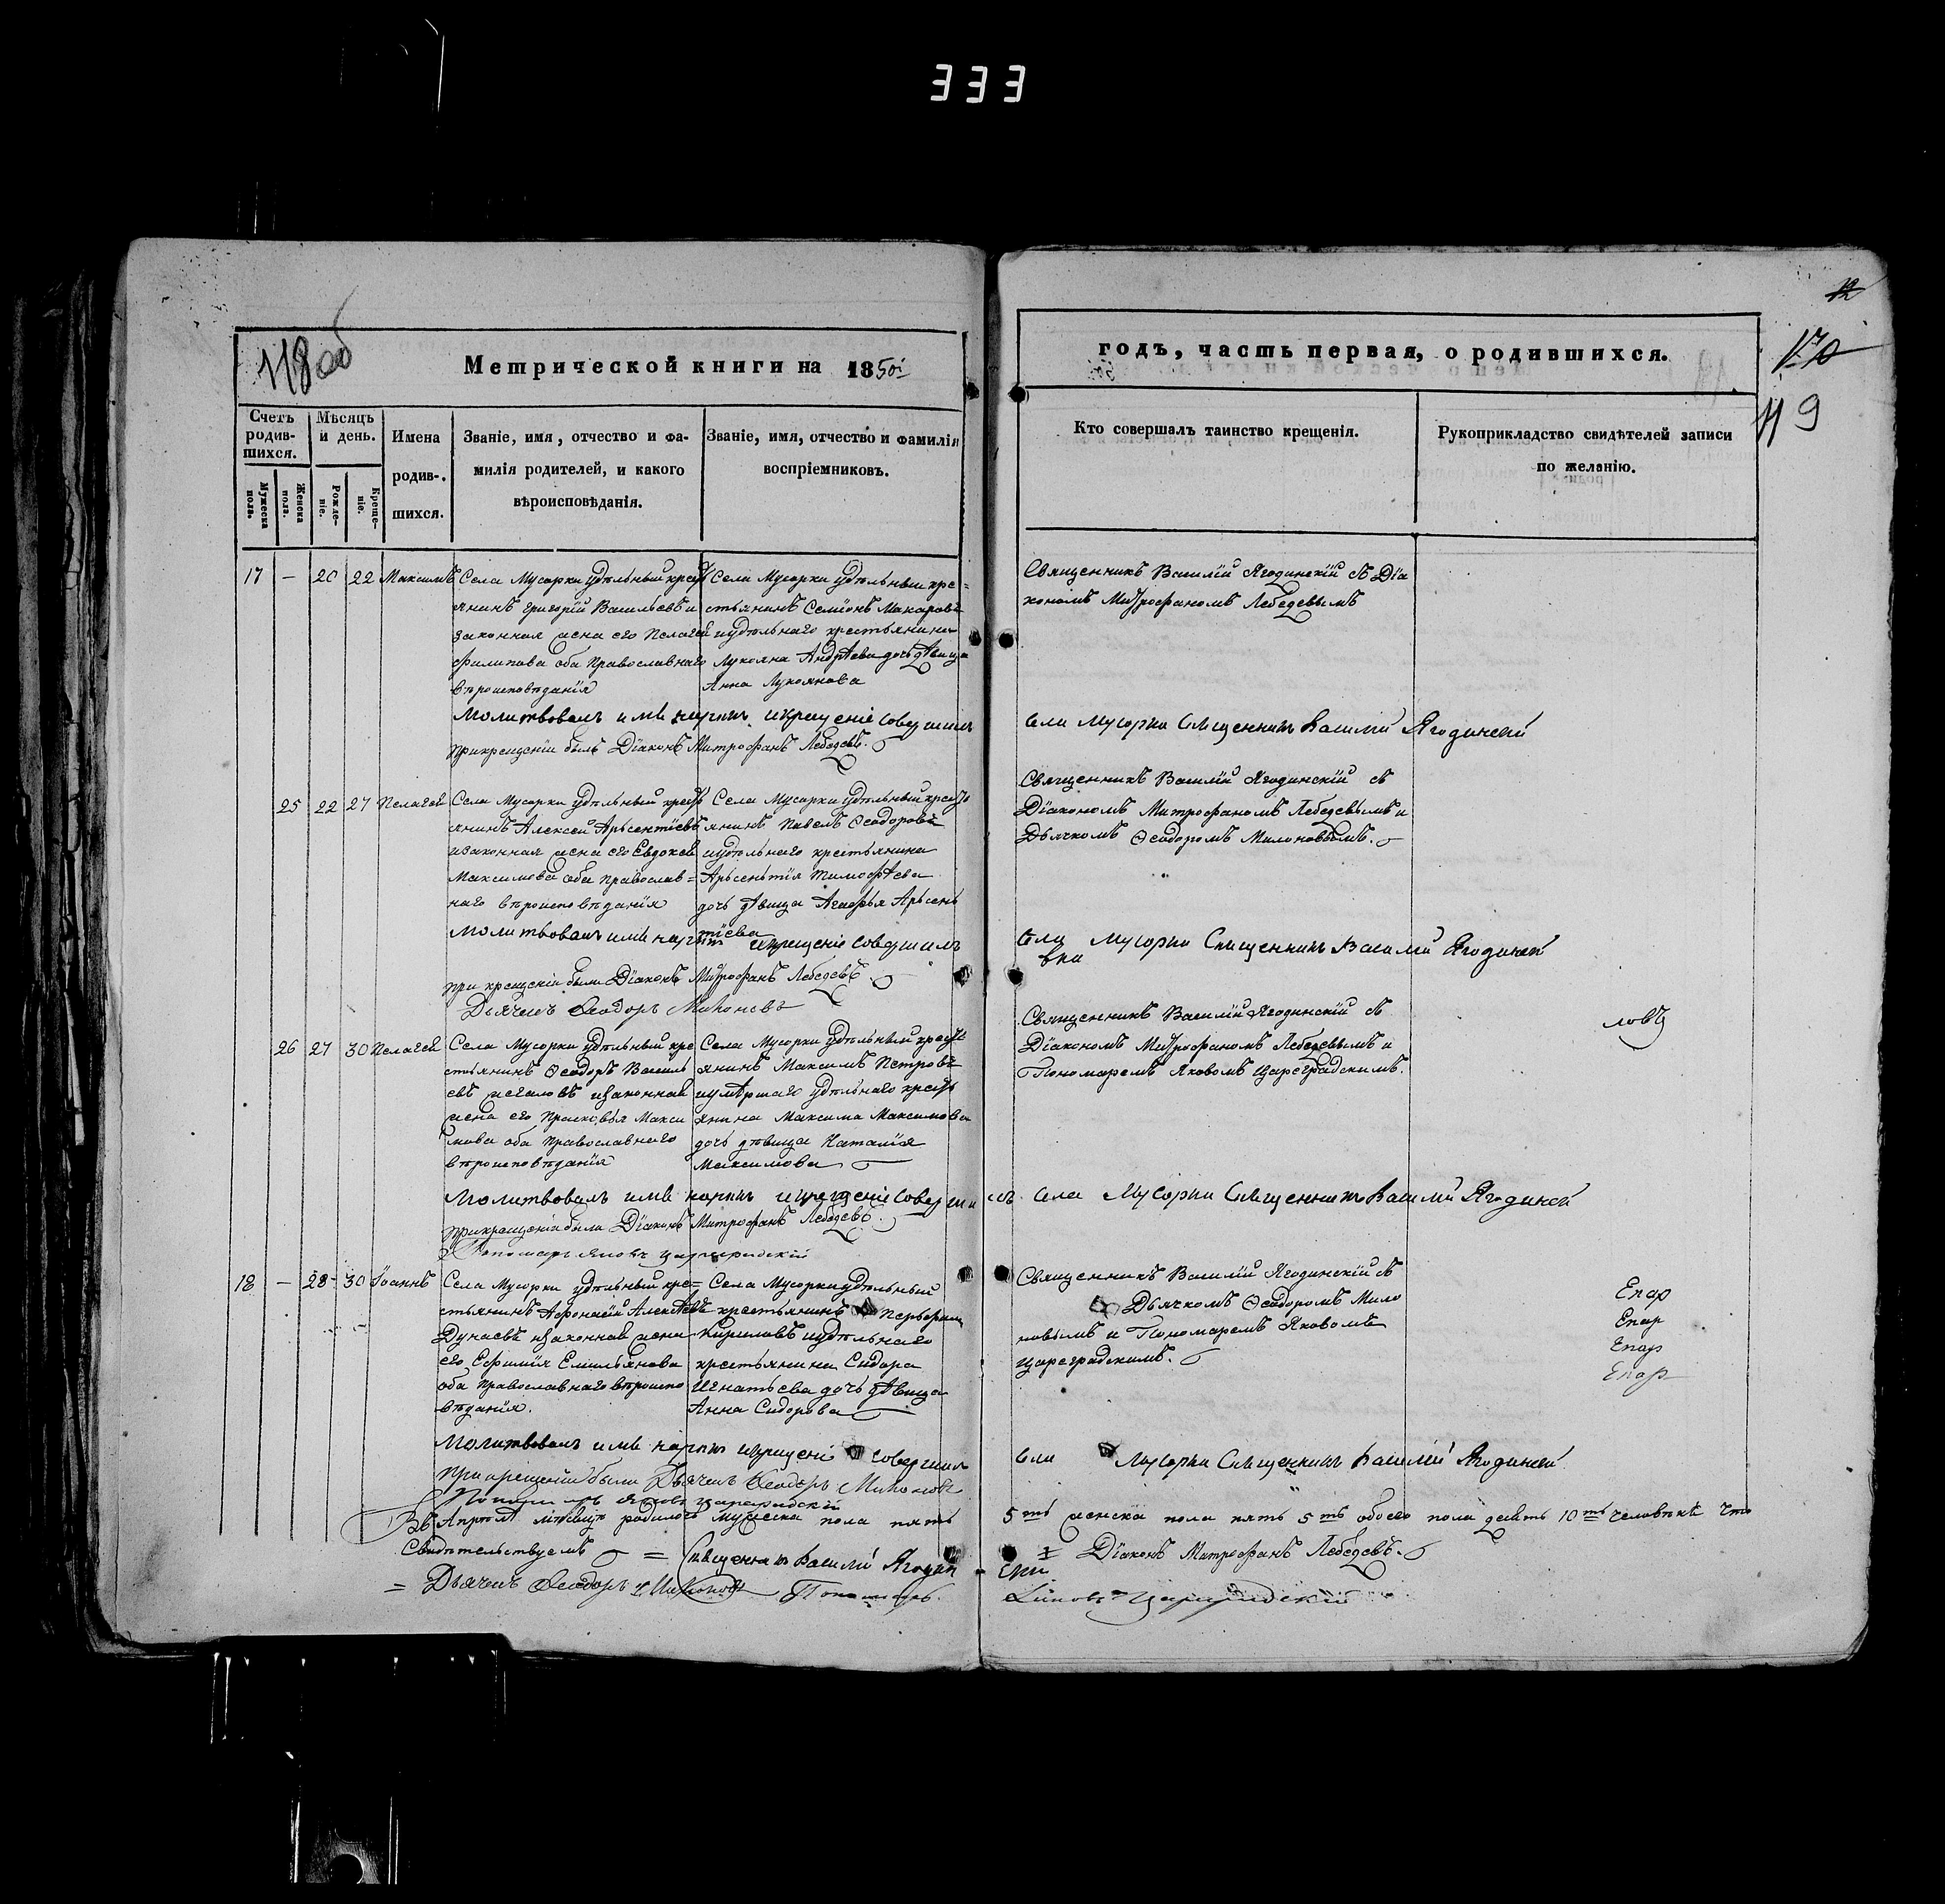 333
12
118 об
Метрической книги на 1850й
годъ, часть первая, о родившихся.
170
119
Счетъ родив-
шихся.
Мужеска пола.
Женска пола.
Мѣсяцъ и день.
Рожде-
ніе.
Креще-
ніе.
Имена
родив-
шихся.
Званіе, имя, отчество и фа-
милія родителей, и какого
вѣроисповѣданія.
Званіе, имя, отчество и фамилія
воспріемниковъ.
Кто совершалъ таинство крещенія.
Рукоприкладство свидѣтелей записи
по желанію.
17 — 20 22 Максимъ
Села Мусорки удѣльный крест
янинъ Григорій Васильевъ и
законная жена его Пелагея
Филипова оба православнаго
вѣроисповѣданія
Села Мусорки удѣльный кре=
стьянинъ Семіонъ Макаровъ
и удѣльнаго крестьянина
Лукояна Андрѣева дочь дѣвица
Анна Лукоянова
Священникъ Василій Ягодинскій съ Діа
кономъ Митрофаномъ Лебедевымъ
Молитвовалъ имя нарекъ и крещеніе совершилъ
села Мусорки Священникъ Василій Ягодинскій
при крещеніи былъ Діаконъ Митрофанъ Лебедевъ.
25 22 27 Пелагея
Села Мусорки удѣльный крест
янинъ Алексей Арьсентіевъ
и законная жена его Евдокея
Максимова оба православ=
наго вѣроисповѣданія
Села Мусорки удѣльный крестъ
янинъ Павелъ Ѳеодоровъ
и удѣльнаго крестьянина
Арьсеньтія Тимофѣева
дочь дѣвица Агафья Арьсень
тіева
Священникъ Василій Ягодинскій съ
Діакономъ Митрофаномъ Лебедевымъ и
Дьячкомъ Ѳеодоромъ Милоновымъ.
Молитвовалъ имя нарекъ и крещеніе совершилъ
села Мусорки Священникъ Василій Ягодинскій
при крещеніи были Діаконъ Митрофанъ Лебедевъ
Дьячекъ Ѳеодоръ Милоновъ
26 27 30 Пелагея
Села Мусорки удѣльный кре
стьянинъ Ѳеодоръ Василь
евъ Жегаловъ и законная
жена его Прасковья Макси
мова оба православнаго
вѣроисповѣданія
Села Мусорки удѣльный крестъ
янинъ Максимъ Петровъ
и умѣршаго удѣльнаго кресть
янина Максима Максимова
дочь дѣвица Наталія
Максимова
Священникъ Василій Ягодинскій съ
Діакономъ Митрофаномъ Лебедевымъ и
Пономаремъ Яковомъ Цареградскимъ.
ловъ
Молитвовалъ имя нарекъ и крещеніе совершилъ
села Мусорки Священникъ Василій Ягодинскій
при крещеніи были Діаконъ Митрофанъ Лебедевъ.
Пономарь Яковъ Цареградскій
18 — 28 30 Іоаннъ
Села Мусорки удѣльный кре=
стьянинъ Афонасій Алексѣевъ
Дунаевъ и законная жена
его Ефимія Емильянова
оба православнаго вѣроиспо
вѣданія.
Села Мусорки удѣльный
крестьянинъ Перьфилъ
Кириловъ и удѣльнаго
крестьянина Сидора
Игнатьева дочь дѣвица
Анна Сидорова
Священникъ Василій Ягодинскій съ
Дьячкомъ Ѳеодоромъ Мило
новымъ и Пономаремъ Яковомъ
Цареградскимъ.
Епар
Епар
Епар
Епар
Молитвовалъ имя нарекъ и крещеніе совершилъ
села Мусорки Священникъ Василій Ягодинскій
при крещеніи были Дьячекъ Ѳеодоръ Милоновъ
Пономарь Яковъ Цареградскій
Въ Апрѣлѣ мѣсяцѣ родилось мужеска пола пять 5ть женска пола пять 5ть обоего пола десять 10ть человѣкъ что
Свидѣтельствуемъ = Священникъ Василій Ягодинскій = Діаконъ Митрофанъ Лебедевъ.
= Дьячекъ Ѳеодоръ Милоновъ Пономарь Яковъ Цареградскій